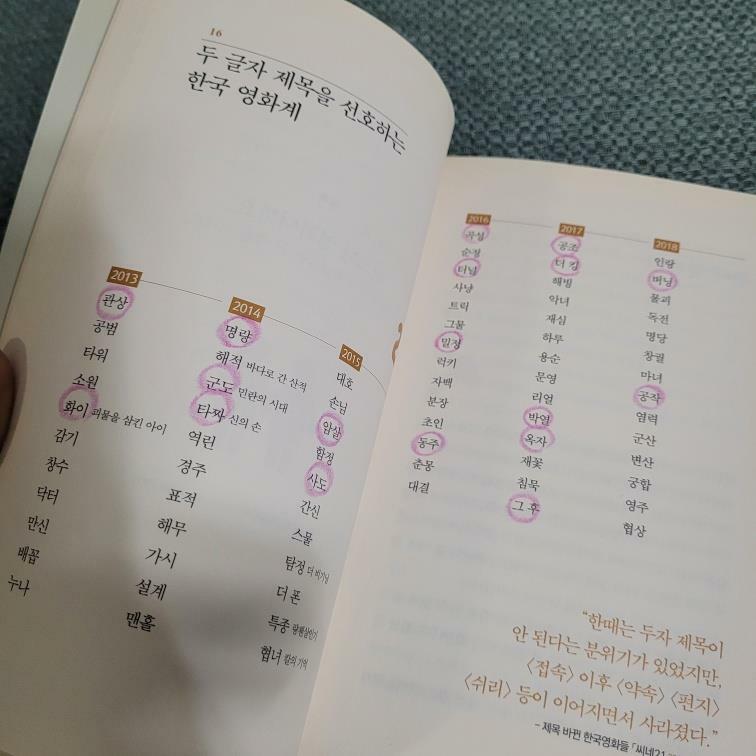 16
두 글자 제목을 선호하는
한국 영화계
2013
관상
공범
타워
소원
화이 괴물을 삼킨 아이
감기
창수
닥터
만신
배꼽
누나
2014
명량
해적 바다로 간 산적
군도 민란의 시대
타짜 신의 손
역린
경주
표적
해무
가시
설계
맨홀
2015
대호
손님
암살
함정
사도
간신
스물
탐정 더 비기닝
더 폰
특종 량첸살인기
협녀 칼의 기억
2016
곡성
순정
터널
사냥
트릭
그물
밀정
럭키
자백
분장
초인
동주
춘몽
대결
2017
공조
더 킹
해빙
악녀
재심
하루
용순
문영
리얼
박열
옥자
재꽃
침묵
그 후
2018
인랑
버닝
물괴
독전
명당
창궐
마녀
공작
염력
군산
변산
궁합
영주
협상
“한때는 두자 제목이
안 된다는 분위기가 있었지만,
〈접속〉 이후 〈약속〉 〈편지〉
〈쉬리〉 등이 이어지면서 사라졌다.”
- 제목 바뀐 한국영화들 「씨네21